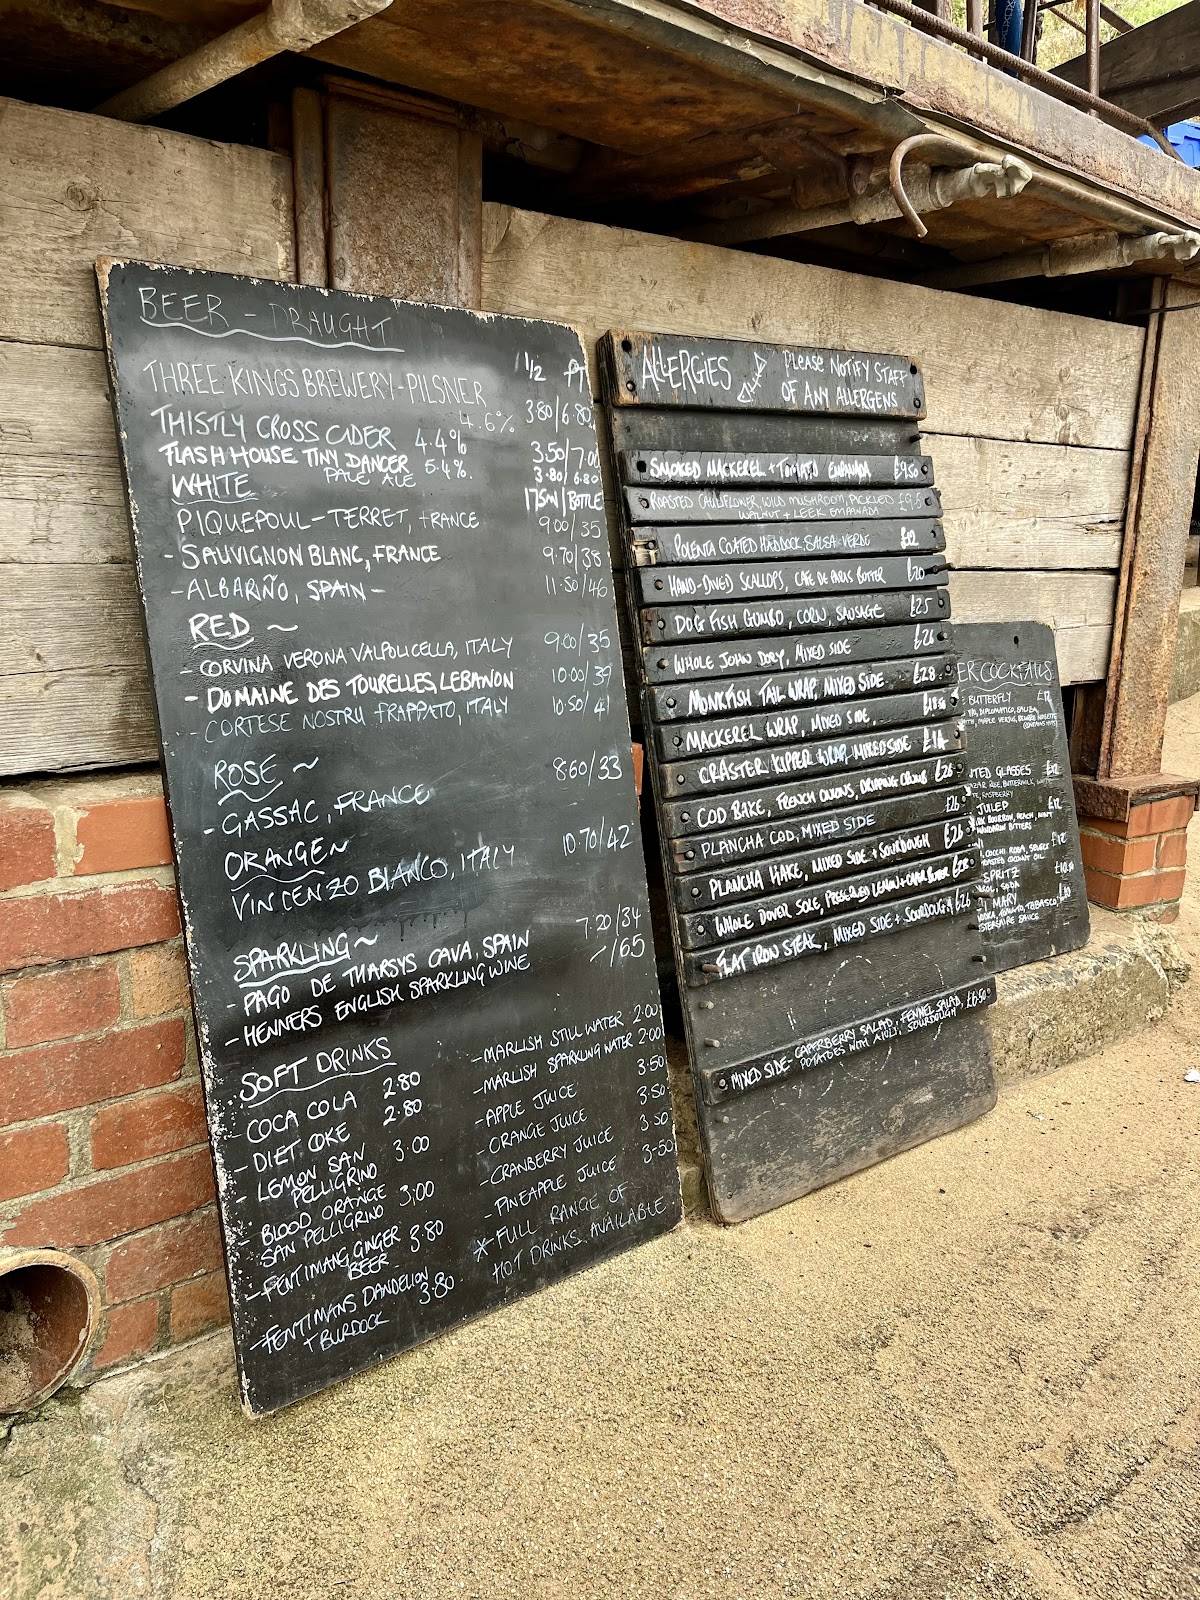 BEER - DRAUGHT
1/2 PT
THREE KINGS BREWERY-PILSNER
4.6% 3.80/6.80
THISTLY CROSS CIDER 4.4% 3.50/7.00
FLASH HOUSE TINY DANCER 5.4% 3.80/6.80
PALE ALE
WHITE 175ml/BOTTLE
PIQUEPOUL-TERRET, FRANCE 9.00/35
- SAUVIGNON BLANC, FRANCE 9.70/38
- ALBARIÑO, SPAIN - 11.50/46
RED ~
- CORVINA VERONA VALPOLICELLA, ITALY 9.00/35
- DOMAINE DES TOURELLES, LEBANON 10.00/39
- CORTESE NOSTRU FRAPPATO, ITALY 10.50/41
ROSE ~
- GASSAC, FRANCE 8.60/33
ORANGE ~
VINCENZO BIANCO, ITALY 10.70/42
SPARKLING ~
- PAGO DE THARSYS CAVA, SPAIN 7.20/34
- HENNERS ENGLISH SPARKLING WINE -/65
SOFT DRINKS
- COCA COLA 2.80
- DIET COKE 2.80
- LEMON SAN
PELLIGRINO 3.00
- BLOOD ORANGE
SAN PELLIGRINO 3.00
- FENTIMANG GINGER
BEER 3.80
- FENTIMANS DANDELION
+ BURDOCK 3.80
- MARLISH STILL WATER 2.00
- MARLISH SPARKLING WATER 2.00
- APPLE JUICE 3.50
- ORANGE JUICE 3.50
- CRANBERRY JUICE 3.50
- PINEAPPLE JUICE 3.50
*-FULL RANGE OF
HOT DRINKS AVAILABLE
ALLERGIES
PLEASE NOTIFY STAFF
OF ANY ALLERGENS
SMOKED MACKEREL + TOMATO EMPANADA £9.50
ROASTED CAULIFLOWER, WILD MUSHROOM, PICKLED £9.5
WALNUT + LEEK EMPANADA
POLENTA COATED HADDOCK, SALSA VERDE £12
HAND-DIVED SCALLOPS, CAFE DE PARIS BUTTER £20
DOG FISH GUMBO, CORN, SAUSAGE £25
WHOLE JOHN DORY, MIXED SIDE £26
MONKFISH TAIL WRAP, MIXED SIDE £28
MACKEREL WRAP, MIXED SIDE
CRASTER KIPPER WRAP, MIXED SIDE £19
COD BAKE, FRENCH ONIONS, DRIPPING CRUMB £26
PLANCHA COD, MIXED SIDE £26
PLANCHA HAKE, MIXED SIDE + SOURDOUGH £26
WHOLE DOVER SOLE, PRESERVED LEMON + CAPER BUTTER £28
FLAT IRON STEAK, MIXED SIDE + SOURDOUGH £26
MIXED SIDE - CAPERBERRY SALAD, FENNEL SALAD, £6.50
POTATOES WITH AIOLI, SOURDOUGH
ER COCKTAILS
BUTTERFLY £12
DIPLOMATICO
MAPLE VERJUS
TED GLASSES £12
BUTTERMILK
RASPBERRY
JULEP £12
BOURBON, PEACH, MINT
MANDARIN BITTERS
COCCHI ROSA £12
TOASTED COCONUT OIL
SPRITZ £10.50
SODA
MARY £10
TOMATO, TABASCO
SAUCE